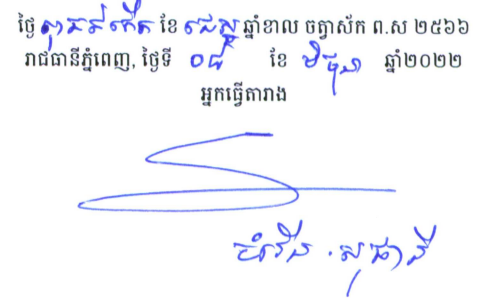 ថ្ងៃ ពុធ ៩ កើត ខែ ជេស្ឋ ឆ្នាំខាល ចត្វាស័ក ព.ស ២៥៦៦
រាជធានីភ្នំពេញ, ថ្ងៃទី ០៨ ខែ មិថុនា ឆ្នាំ២០២២
អ្នកធ្វើតារាង